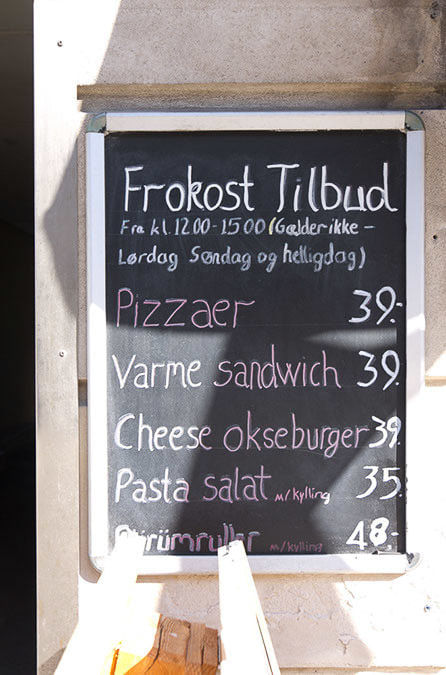 Frokost Tilbud
Fra kl. 12.00-15.00 (Gælder ikke -
Lørdag Søndag og helligdag)
Pizzaer 39.-
Varme sandwich 39.-
Cheese okseburger 39.-
Pasta salat m/kylling 35.-
m/kylling 48,-